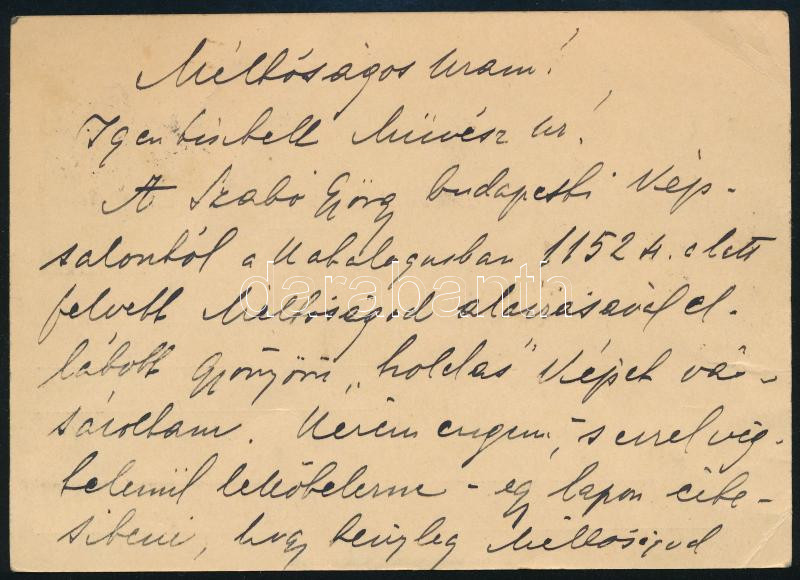 Méltóságos Uram!
Igen tisztelt Művész Úr!
A Szabó György budapesti kép-
szalontól a katalogusban 1152 sz. alatt
felvett Méltóságod aláírásával el-
látott gyönyörű „holdas" képet vá-
sároltam. Kérem engem, s ezzel vég-
telenül lekötelezne - egy lapon érte-
siteni, hogy tényleg Méltóságod
darabanth.com